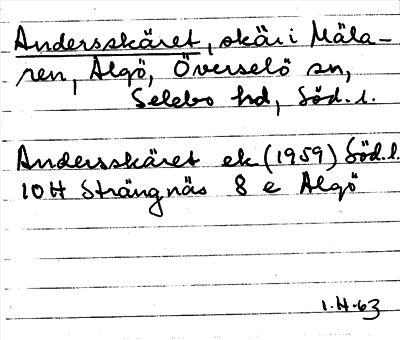 Andersskäret, skär i Mäla-
ren, Algö, Överselö sn,
Selebo hd, Söd. l.
Andersskäret ek (1959) Söd. l.
10H Strängnäs 8 e Algö
1.H.63